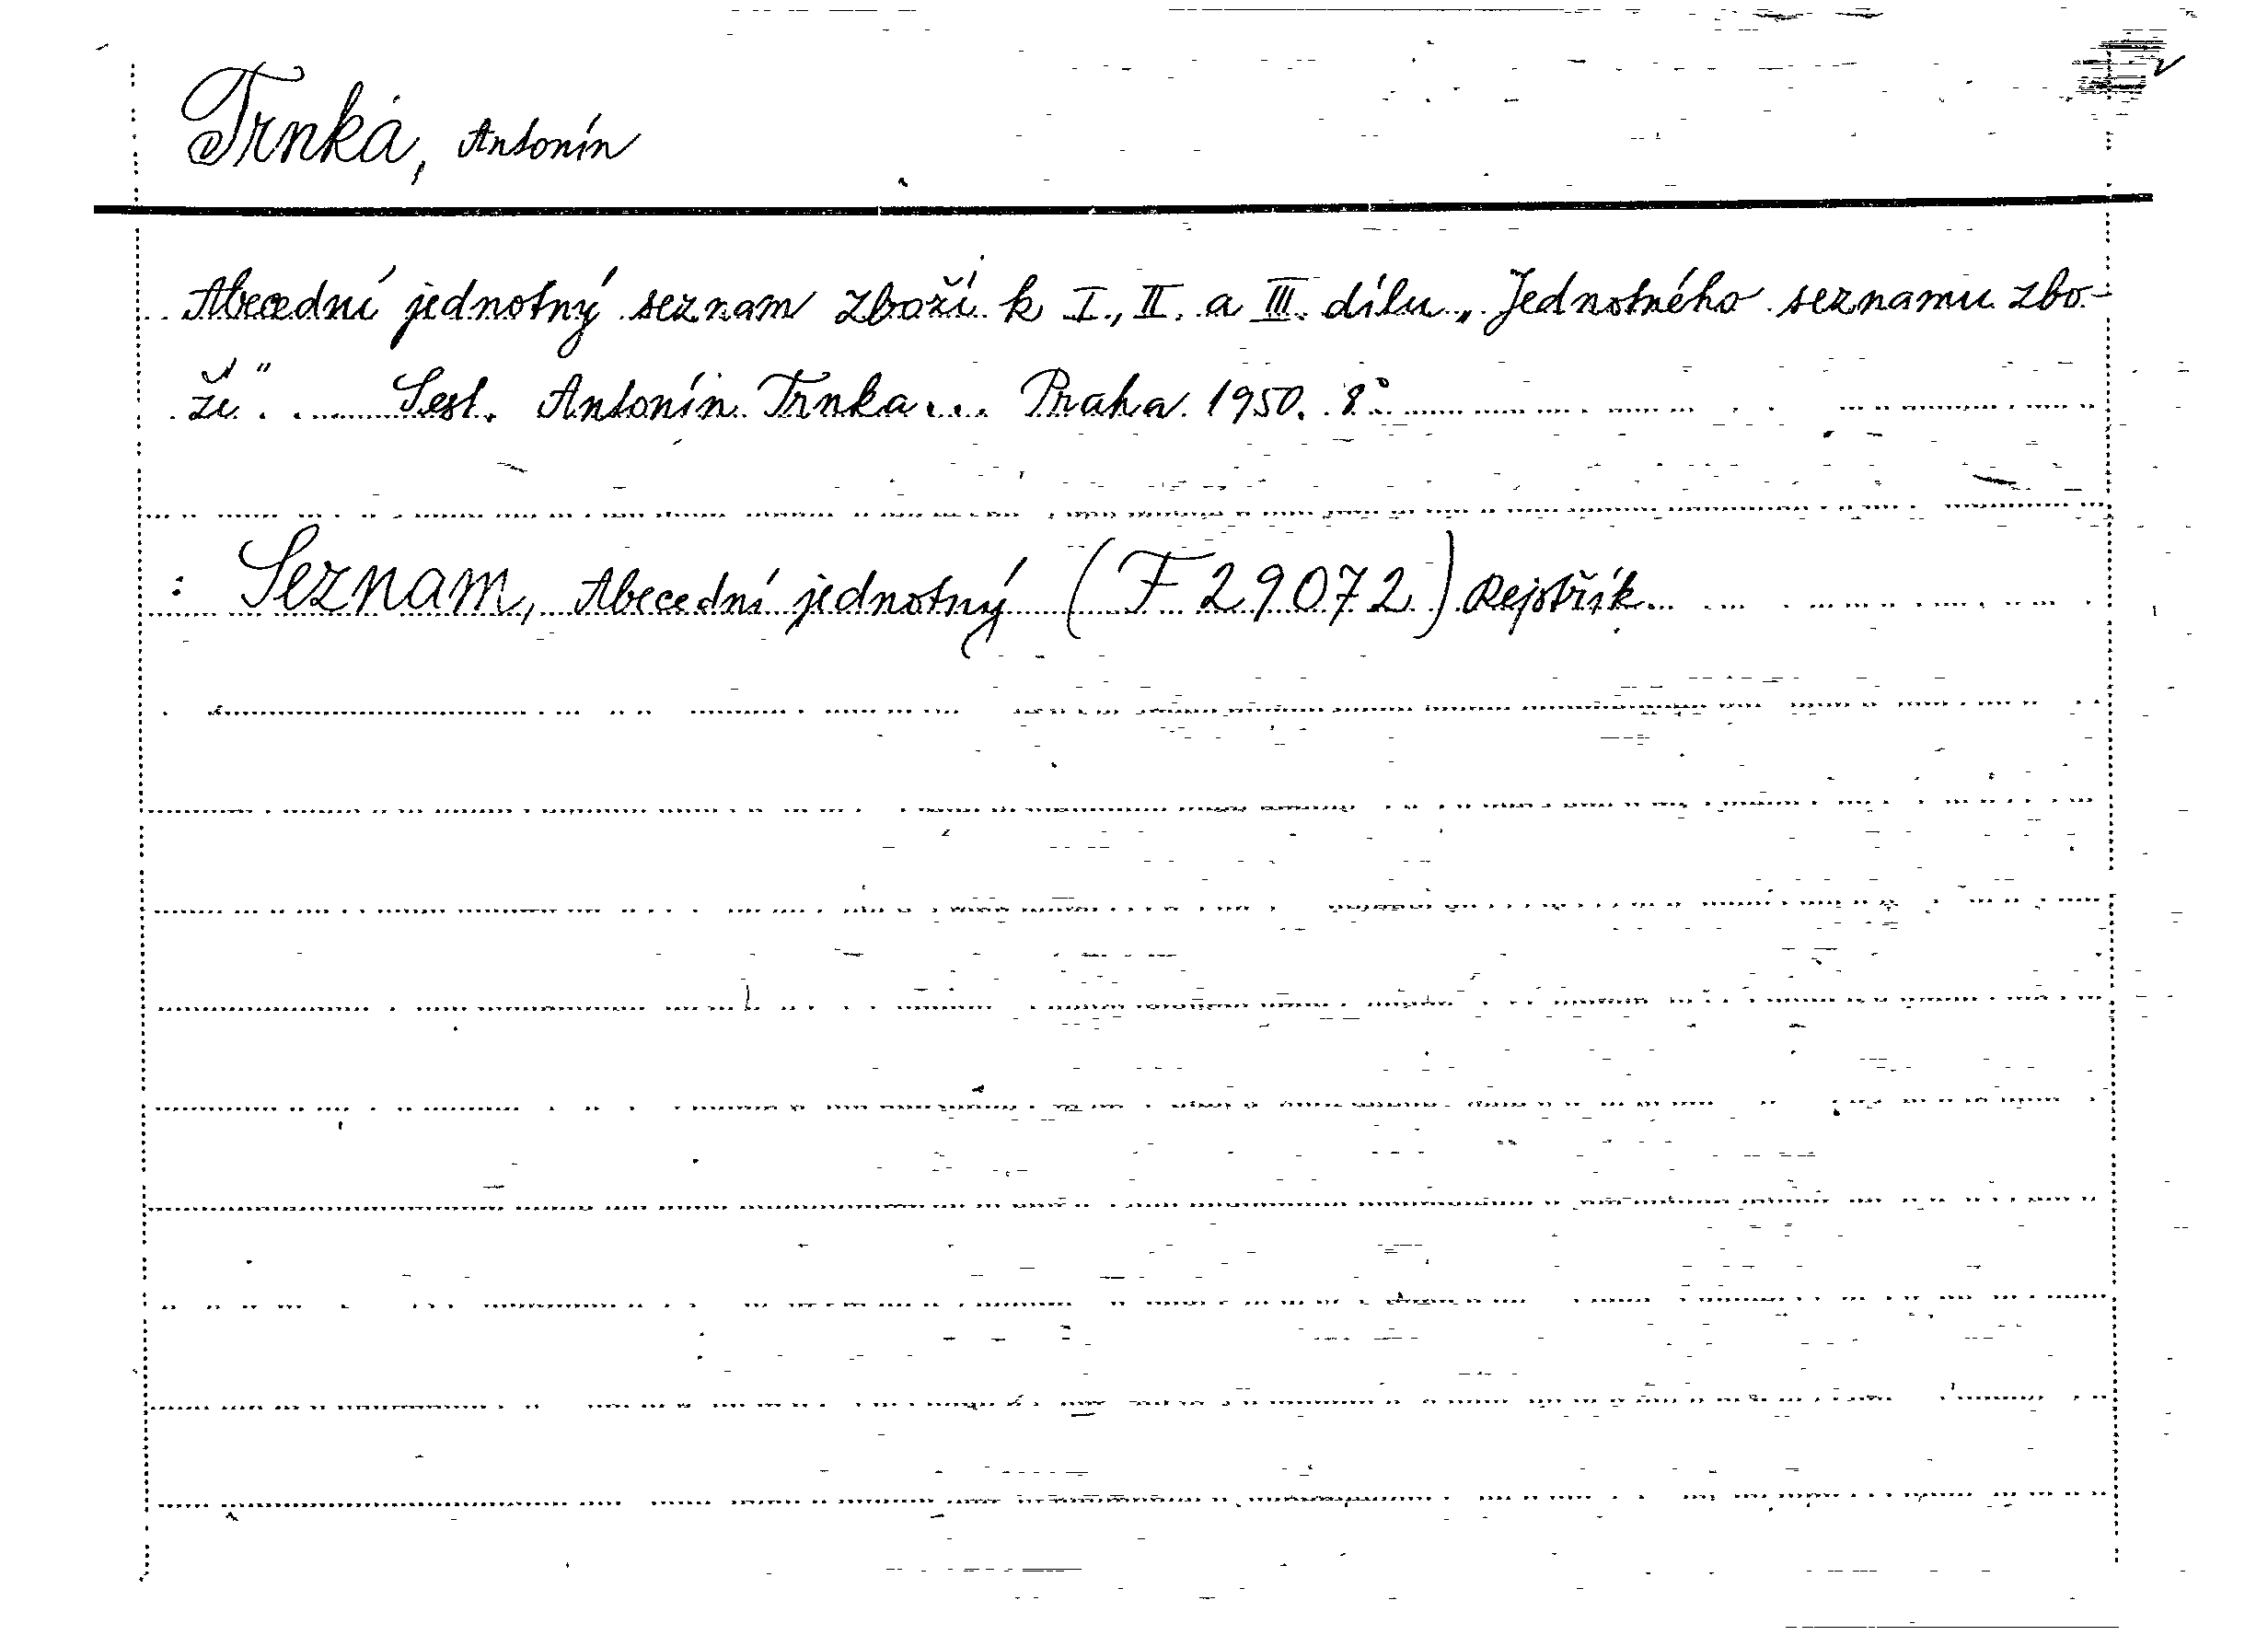 Trnka, Antonín
Abecední jednotný seznam zboží k I., II. a III. dílu „Jednotného seznamu zbo-
ží“. Sest. Antonín Trnka... Praha 1950. 8°
: Seznam, Abecední jednotný (F 29072) Rejstřík